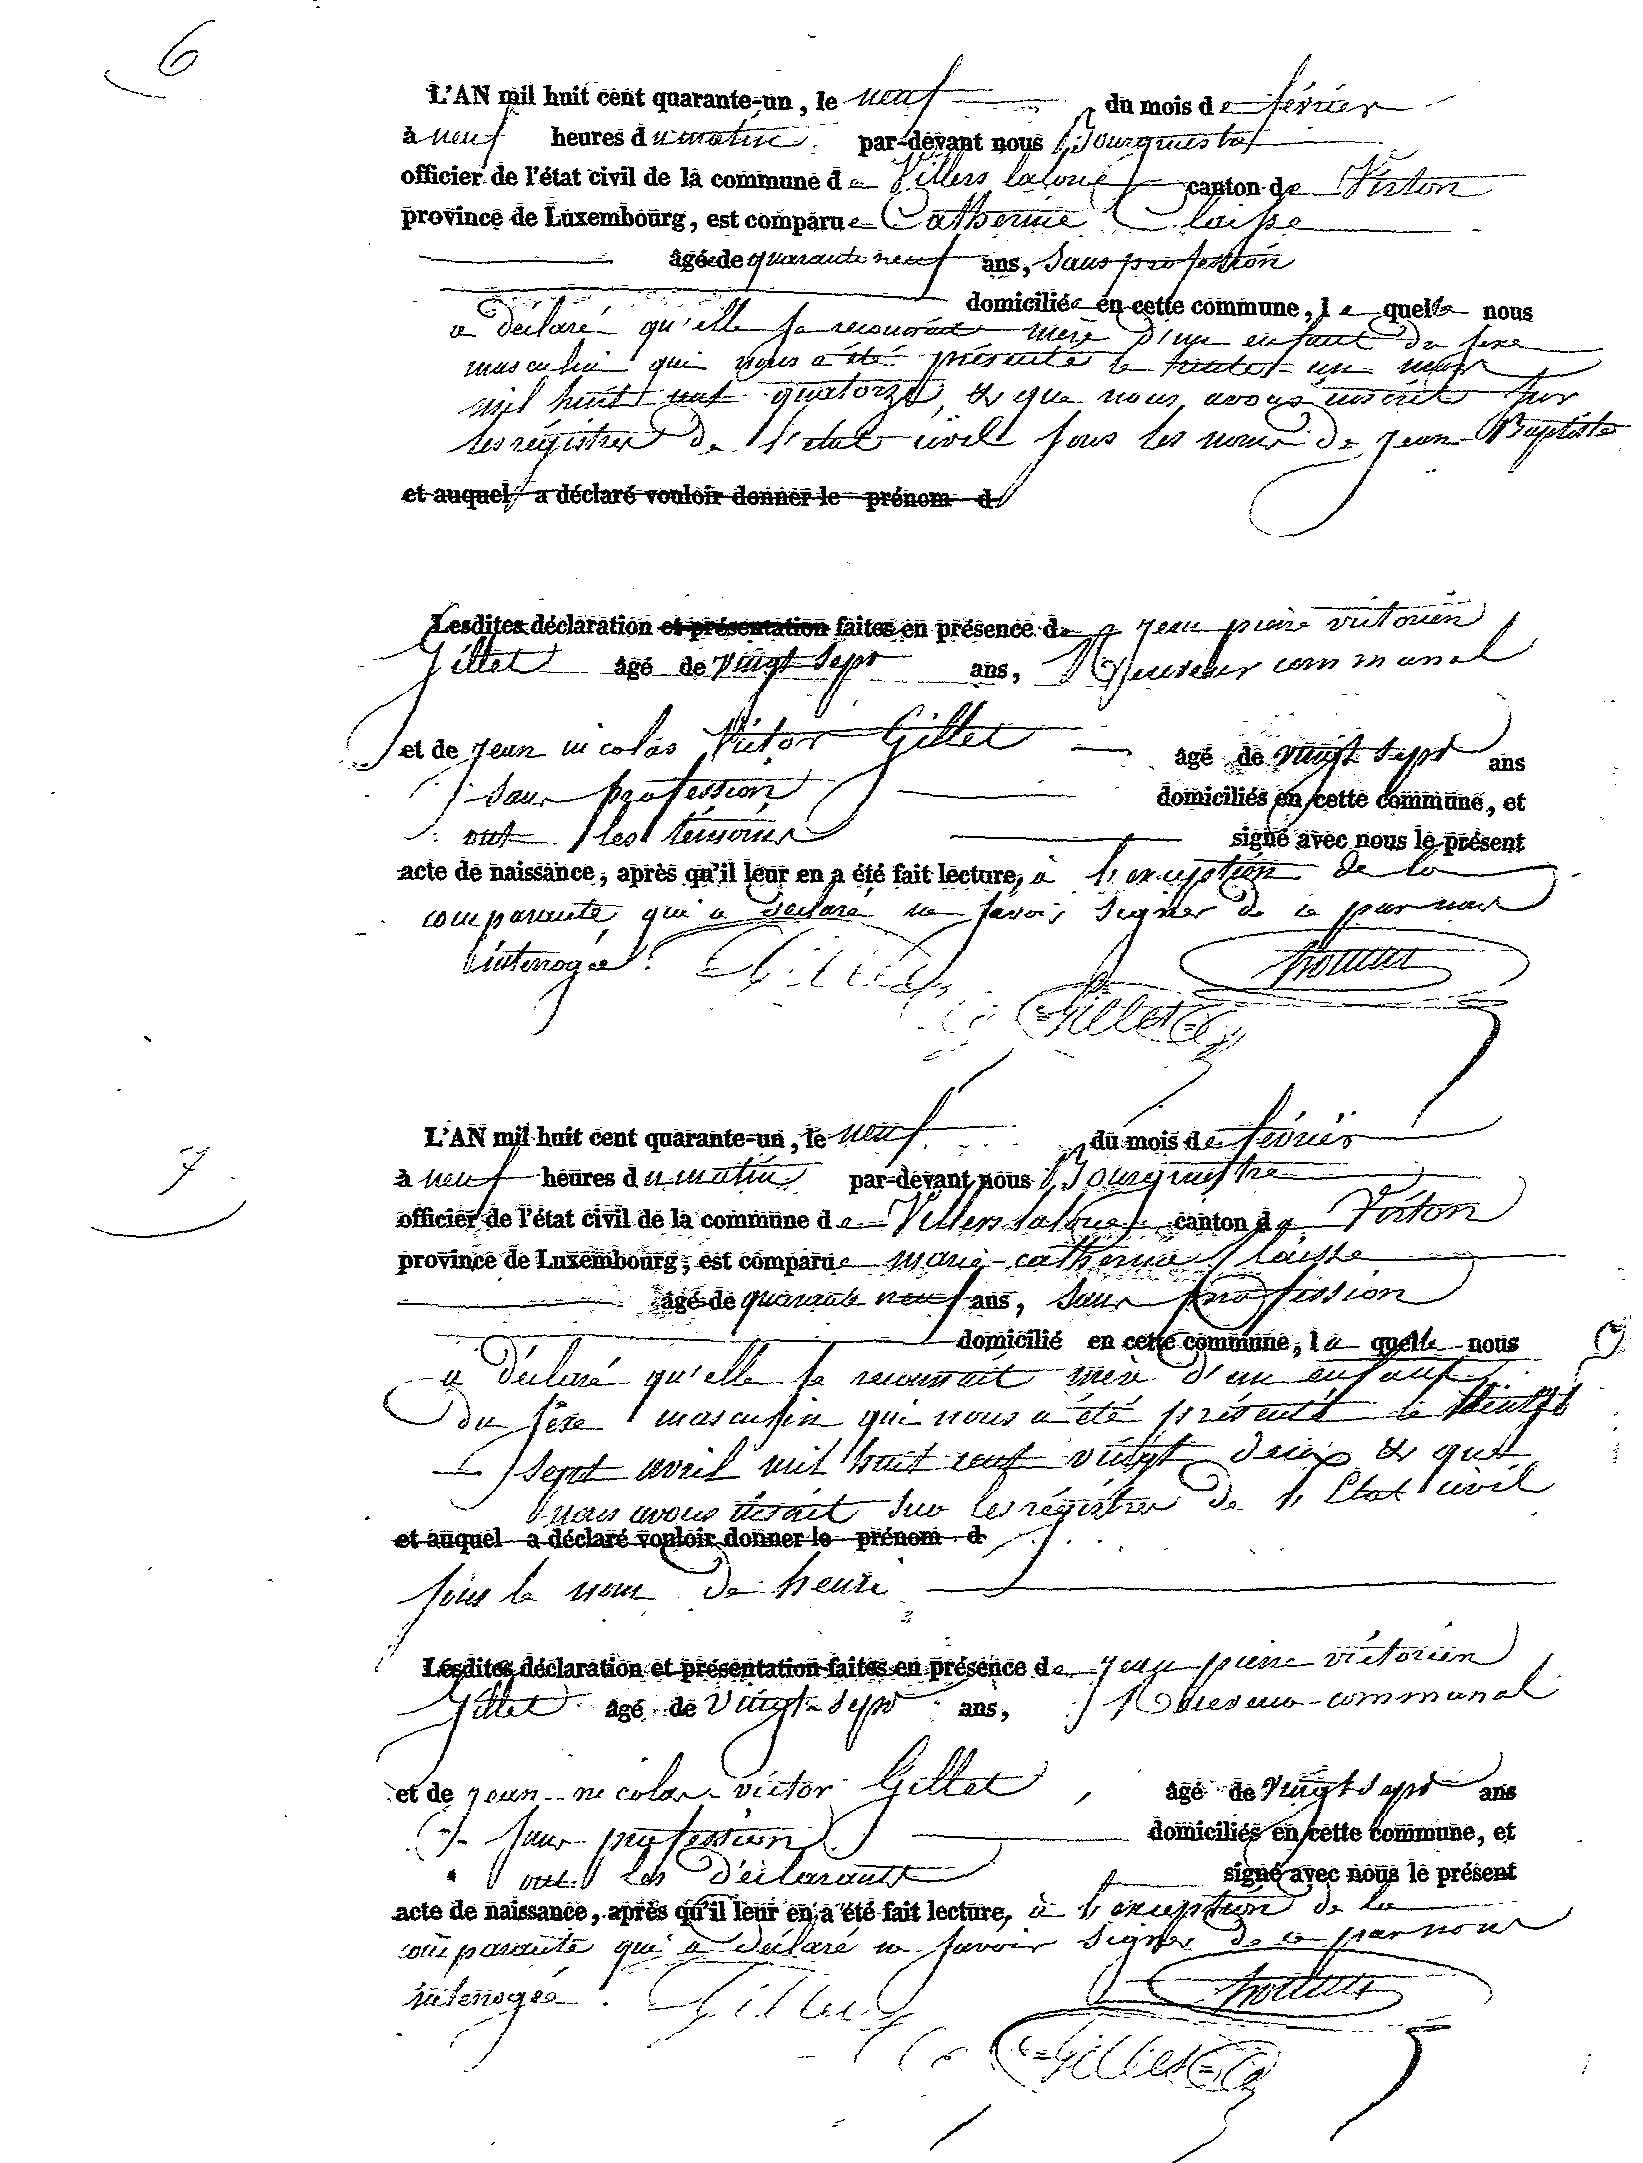 6
L'AN mil huit cent quarante-un, le neuf du mois de février
à neuf heures du matin par-devant nous Bourgmestre
officier de l'état civil de la commune de Villers la loue canton de Virton
province de Luxembourg, est comparue Catherine Claisse
âgée de quarante neuf ans, sans profession
domiciliée en cette commune, la quelle nous
a déclaré qu'elle se reconnait mère d'un enfant du sexe
masculin qui nous a été présenté le trente un mars
mil huit cent quatorze, & que nous avons inscrit sur
les régistres de l'etat civil sous les noms de Jean Baptiste
et auquel a déclaré vouloir donner le prénom d
Lesdites déclaration et présentation faites en présence de Jean pierre victorien
Gillet âgé de vingt sept ans, Receveur communal
et de Jean nicolas Victor Gillet âgé de vingt sept ans
sans profession domiciliés en cette commune, et
ont les témoins signé avec nous le présent
acte de naissance, après qu'il leur en a été fait lecture, à l'exception de la
comparante qui a declaré ne savoir signer de ce par nous
interrogée.
Gillet
Gillet
7
L'AN mil huit cent quarante-un, le neuf du mois de février
à neuf heures du matin par-devant nous Bourgmestre
officier de l'état civil de la commune de Villers la loue canton de Virton
province de Luxembourg, est comparue marie catherine Claisse
âgé de quarante neuf ans, sans profession
domicilié en cette commune, la quelle nous
a déclaré qu'elle se reconnait mère d'un enfant
du sexe masculin qui nous a été présenté le vingt
sept avril mil huit cent vingt deux & que
nous avons inscrit sur les régistres de l'Etat civil
et auquel a déclaré vouloir donner le prénom d
sous le nom de henri
Lesdites déclaration et présentation faites en présence de Jean pierre victorien
Gillet âgé de vingt sept ans, Receveur communal
et de Jean nicolas victor Gillet âgé de vingt sept ans
sans profession domiciliés en cette commune, et
ont les déclarants signé avec nous le présent
acte de naissance, après qu'il leur en a été fait lecture, à l'exception de la
comparante qui a déclaré ne savoir signer de ce par nous
interrogée.
Gillet
Gillet